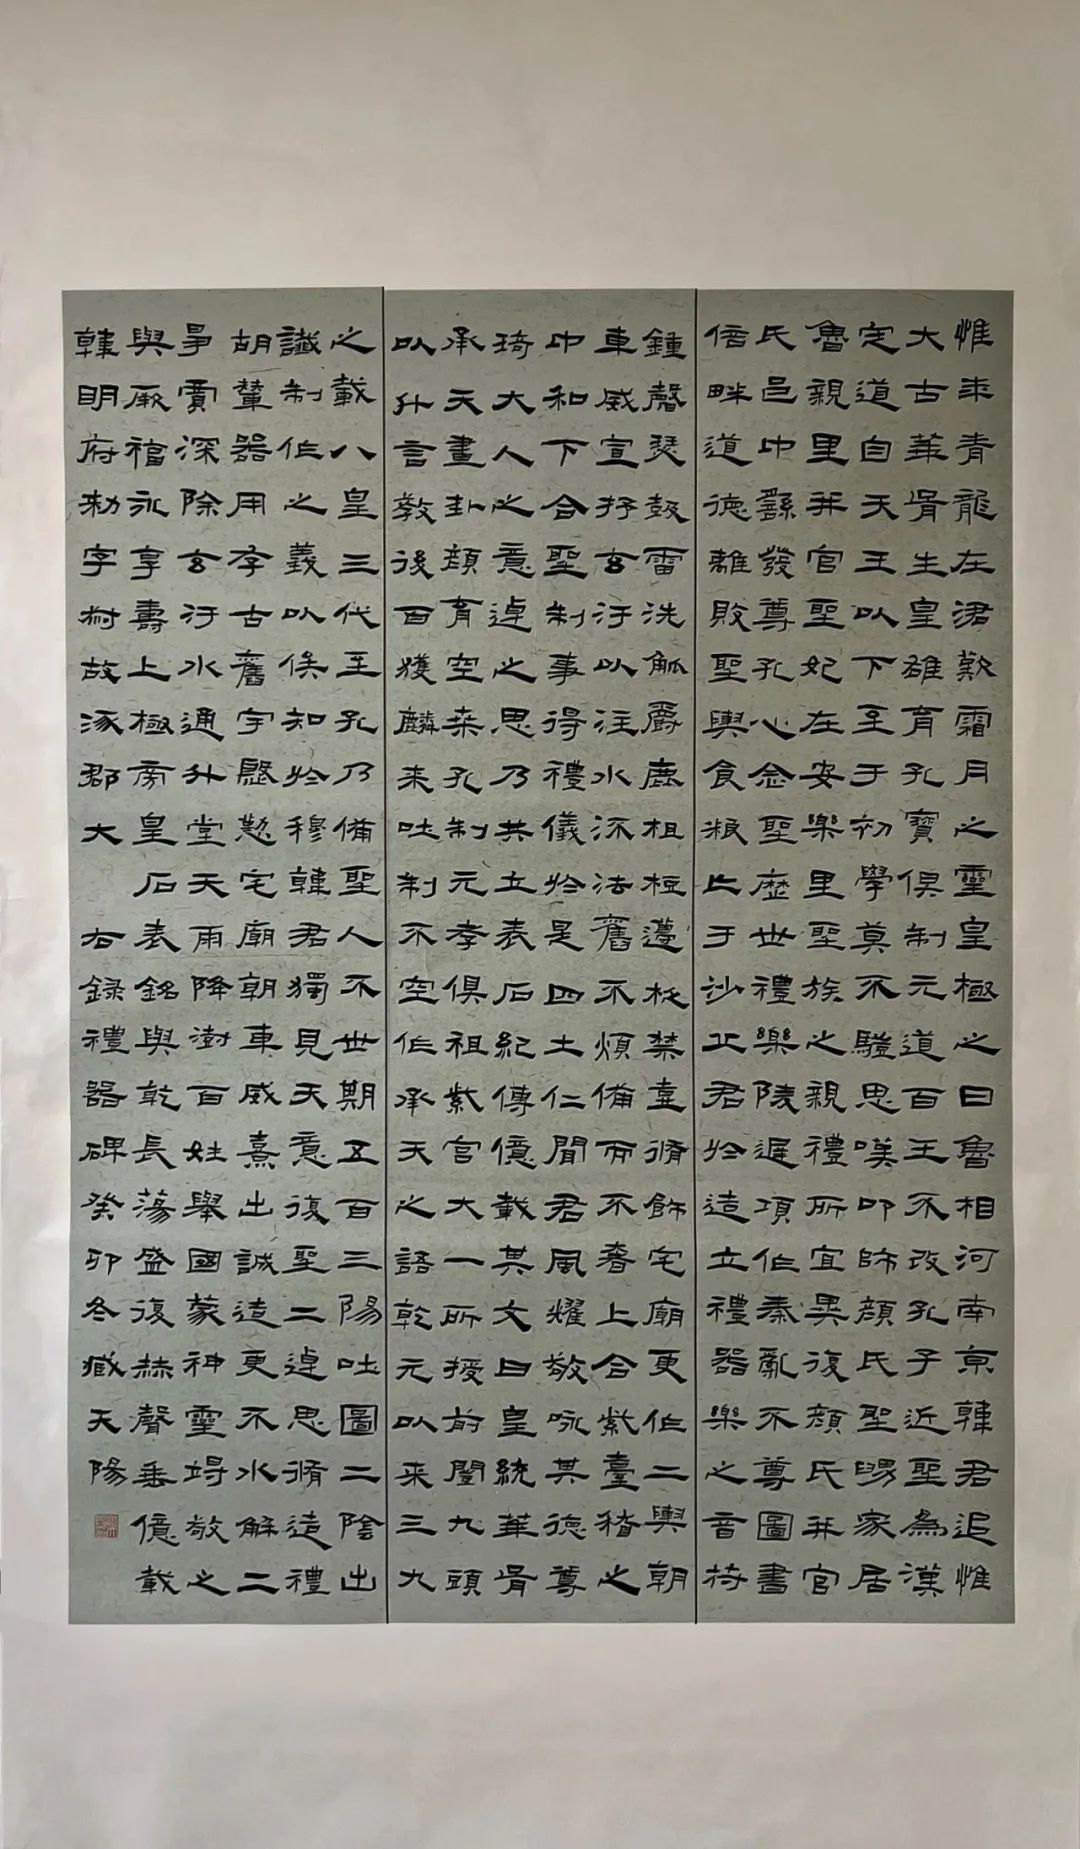 惟來青龍在涒歎霜月之靈皇極之日魯相河南京韓君追惟
大古華胥生皇雄育孔寶俱制元道百王不改孔子近聖為漢
定道自天王以下至于初學莫不驗思嘆卬師顏氏聖舅家居
魯親里并官聖妃在安樂里聖族之親禮所宜異復顏氏并官
氏邑中繇發尊孔心念聖歷世禮樂陵遲項作秦亂不尊圖書
倍畔道德離敗聖輿食糧亡于沙丘君於造立禮器樂之音符
鍾磬瑟鼓雷洗觚爵鹿柤梪籩柉禁壺脩飾宅廟更作二輿朝
車威宣抒玄汙以注水流法舊不煩備而不奢上合紫臺稽之
中和下合聖制事得禮儀於是四土仁聞君風燿敬咏其德尊
琦大人之意逴之思乃共立表石紀傳億載其文曰皇統華胥
承天畫卦顏育空桑孔制元孝俱祖紫宮大一所授前闓九頭
以升言教後百獲麟來吐制不空作承天之語乾元以來三九
之載八皇三代至孔乃備聖人不世期五百三陽吐圖二陰出
讖制作之義以俟知於穆韓君獨見天意復聖二逴思脩造禮
胡輦器用存古舊宇慇懃宅廟朝車威熹出誠造更不水解二
爭賈深除玄汙水通升堂天雨降澍百姓舉國蒙神靈竭敬之
與厥福永享壽上極旁皇石表銘與乾長蕩盛復赫聲垂億載
韓明府勑字叔故涿郡大右錄禮器碑癸卯冬臧天陽